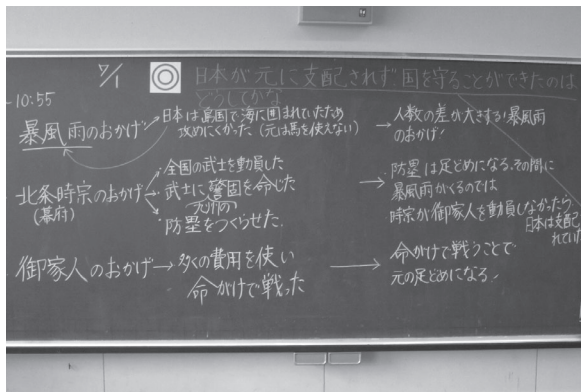 7/1
日本が元に支配されず国を守ることができたのは
どうしてかな
-10:55
暴風雨のおかげ
日本は島国で海に囲まれていたため
攻めにくかった（元は馬を使えない）
人数の差が大きすぎる!暴風雨
のおかげ!
北条時宗のおかげ
(幕府)
全国の武士を動員した
武士に警固を命じた
九州の
防塁をつくらせた.
防塁は足どめになる.その間に
暴風雨がくるのでは
時宗が御家人を動員しなかったら
日本は支配
されてい
御家人のおかげ
多くの費用を使い
命がけで戦った
命がけで戦うことで
元の足どめになる!